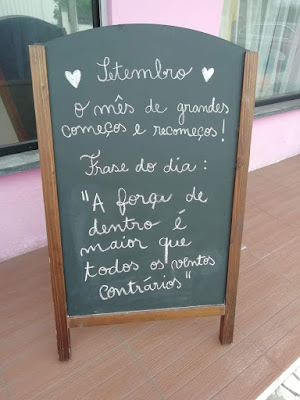 Setembro
o mês de grandes
começos e recomeços!
Frase do dia:
"A força de
dentro é
maior que
todos os ventos
contrários"